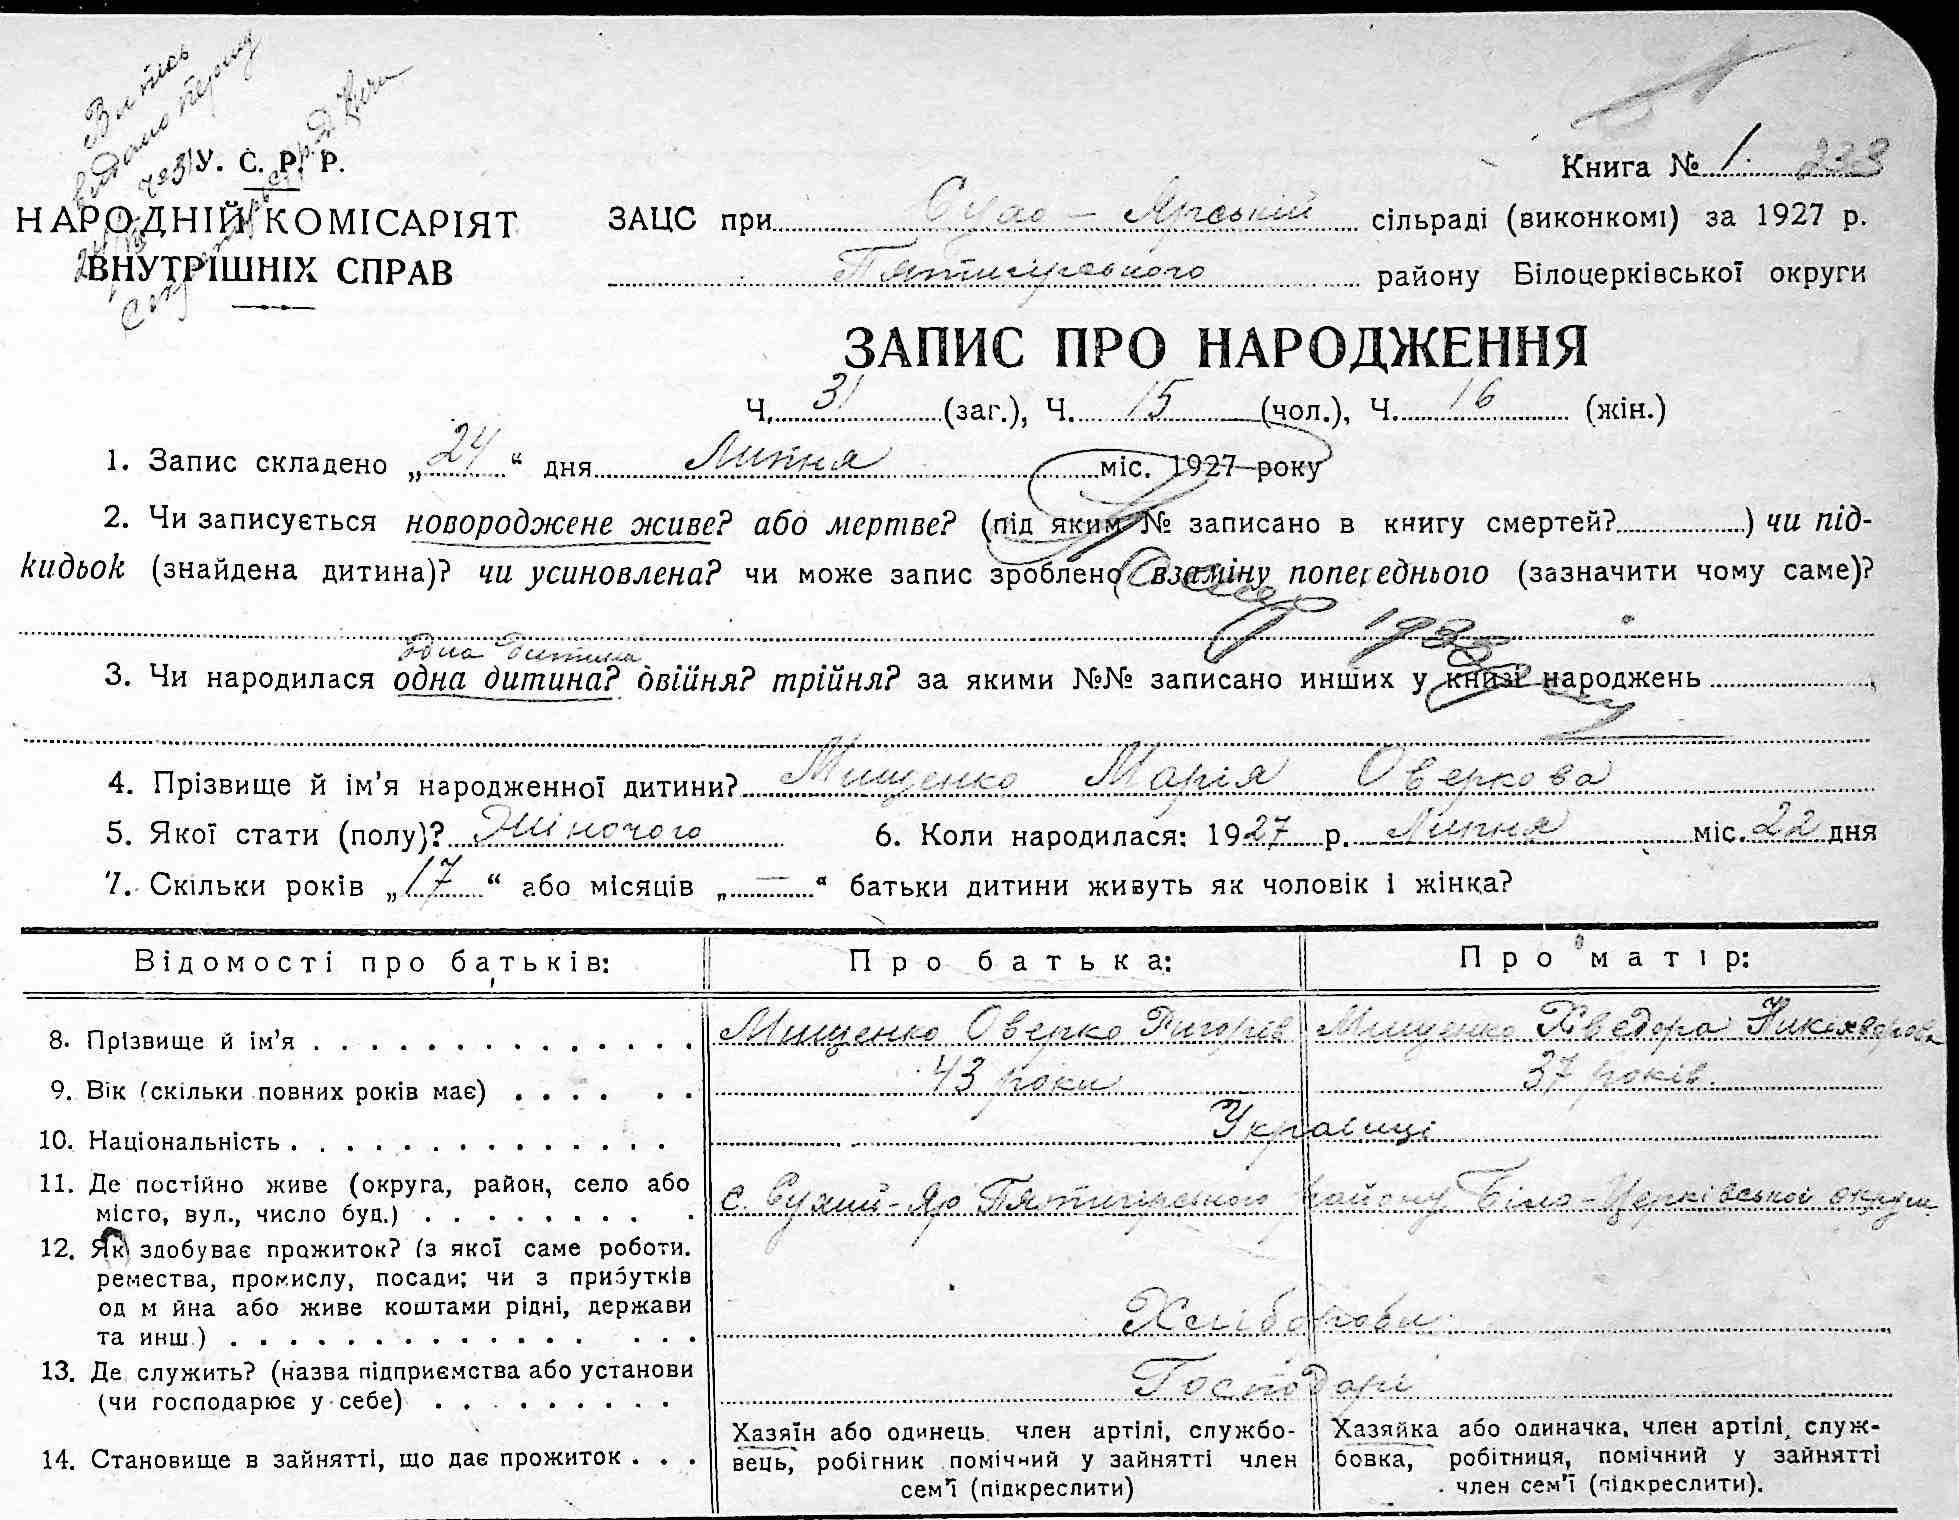 Витяг
видано першу
№31
У. С. Р. Р.
НАРОДНІЙ КОМІСАРІЯТ
ВНУТРІШНІХ СПРАВ
Книга № 1. 233
ЗАЦС при Сухо-Ярській сільраді (виконкомі) за 1927 р.
Пятигірського району Білоцерківської округи
ЗАПИС ПРО НАРОДЖЕННЯ
Ч. 31 (заг.), Ч. 15 (чол.), Ч. 16 (жін.)
1. Запис складено „24“ дня Липня міс. 1927 року
2. Чи записується новороджене живе? або мертве? (під яким № записано в книгу смертей? ) чи під-
кидьок (знайдена дитина)? чи усиновлена? чи може запис зроблено взаміну попереднього (зазначити чому саме)?
одна дитина
3. Чи народилася одна дитина? двійня? трійня? за якими №№ записано инших у книзі народжень
4. Прізвище й ім'я народженної дитини? Мищенко Марія Оверкова
5. Якої стати (полу)? Жіночого 6. Коли народилася: 1927 р. Липня міс. 22 дня
7. Скільки років „17“ або місяців „—“ батьки дитини живуть як чоловік і жінка?
Відомості про батьків: Про батька: Про матір:
8. Прізвище й ім'я Мищенко Оверко Григорів Мищенко Хведора Никихворова
9. Вік (скільки повних років має) 43 роки 37 років.
10. Національність Українці
11. Де постійно живе (округа, район, село або
місто, вул., число буд.) с. Сухий-Яр Пятигірського району Біло-Церківської округи
12. Як здобуває прожиток? (з якої саме роботи.
ремества, промислу, посади; чи з прибутків
од м йна або живе коштами рідні, держави
та инш.) Хлібороби
13. Де служить? (назва підприємства або установи
(чи господарює у себе) Господарі
14. Становище в зайнятті, що дає прожиток
Хазяїн або одинець член артілі, службо-
вець, робігник помічний у зайнятті член
сем'ї (підкреслити)
Хазяйка або одиначка, член артілі, служ-
бовка, робітниця, помічний у зайнятті
член сем'ї (підкреслити).